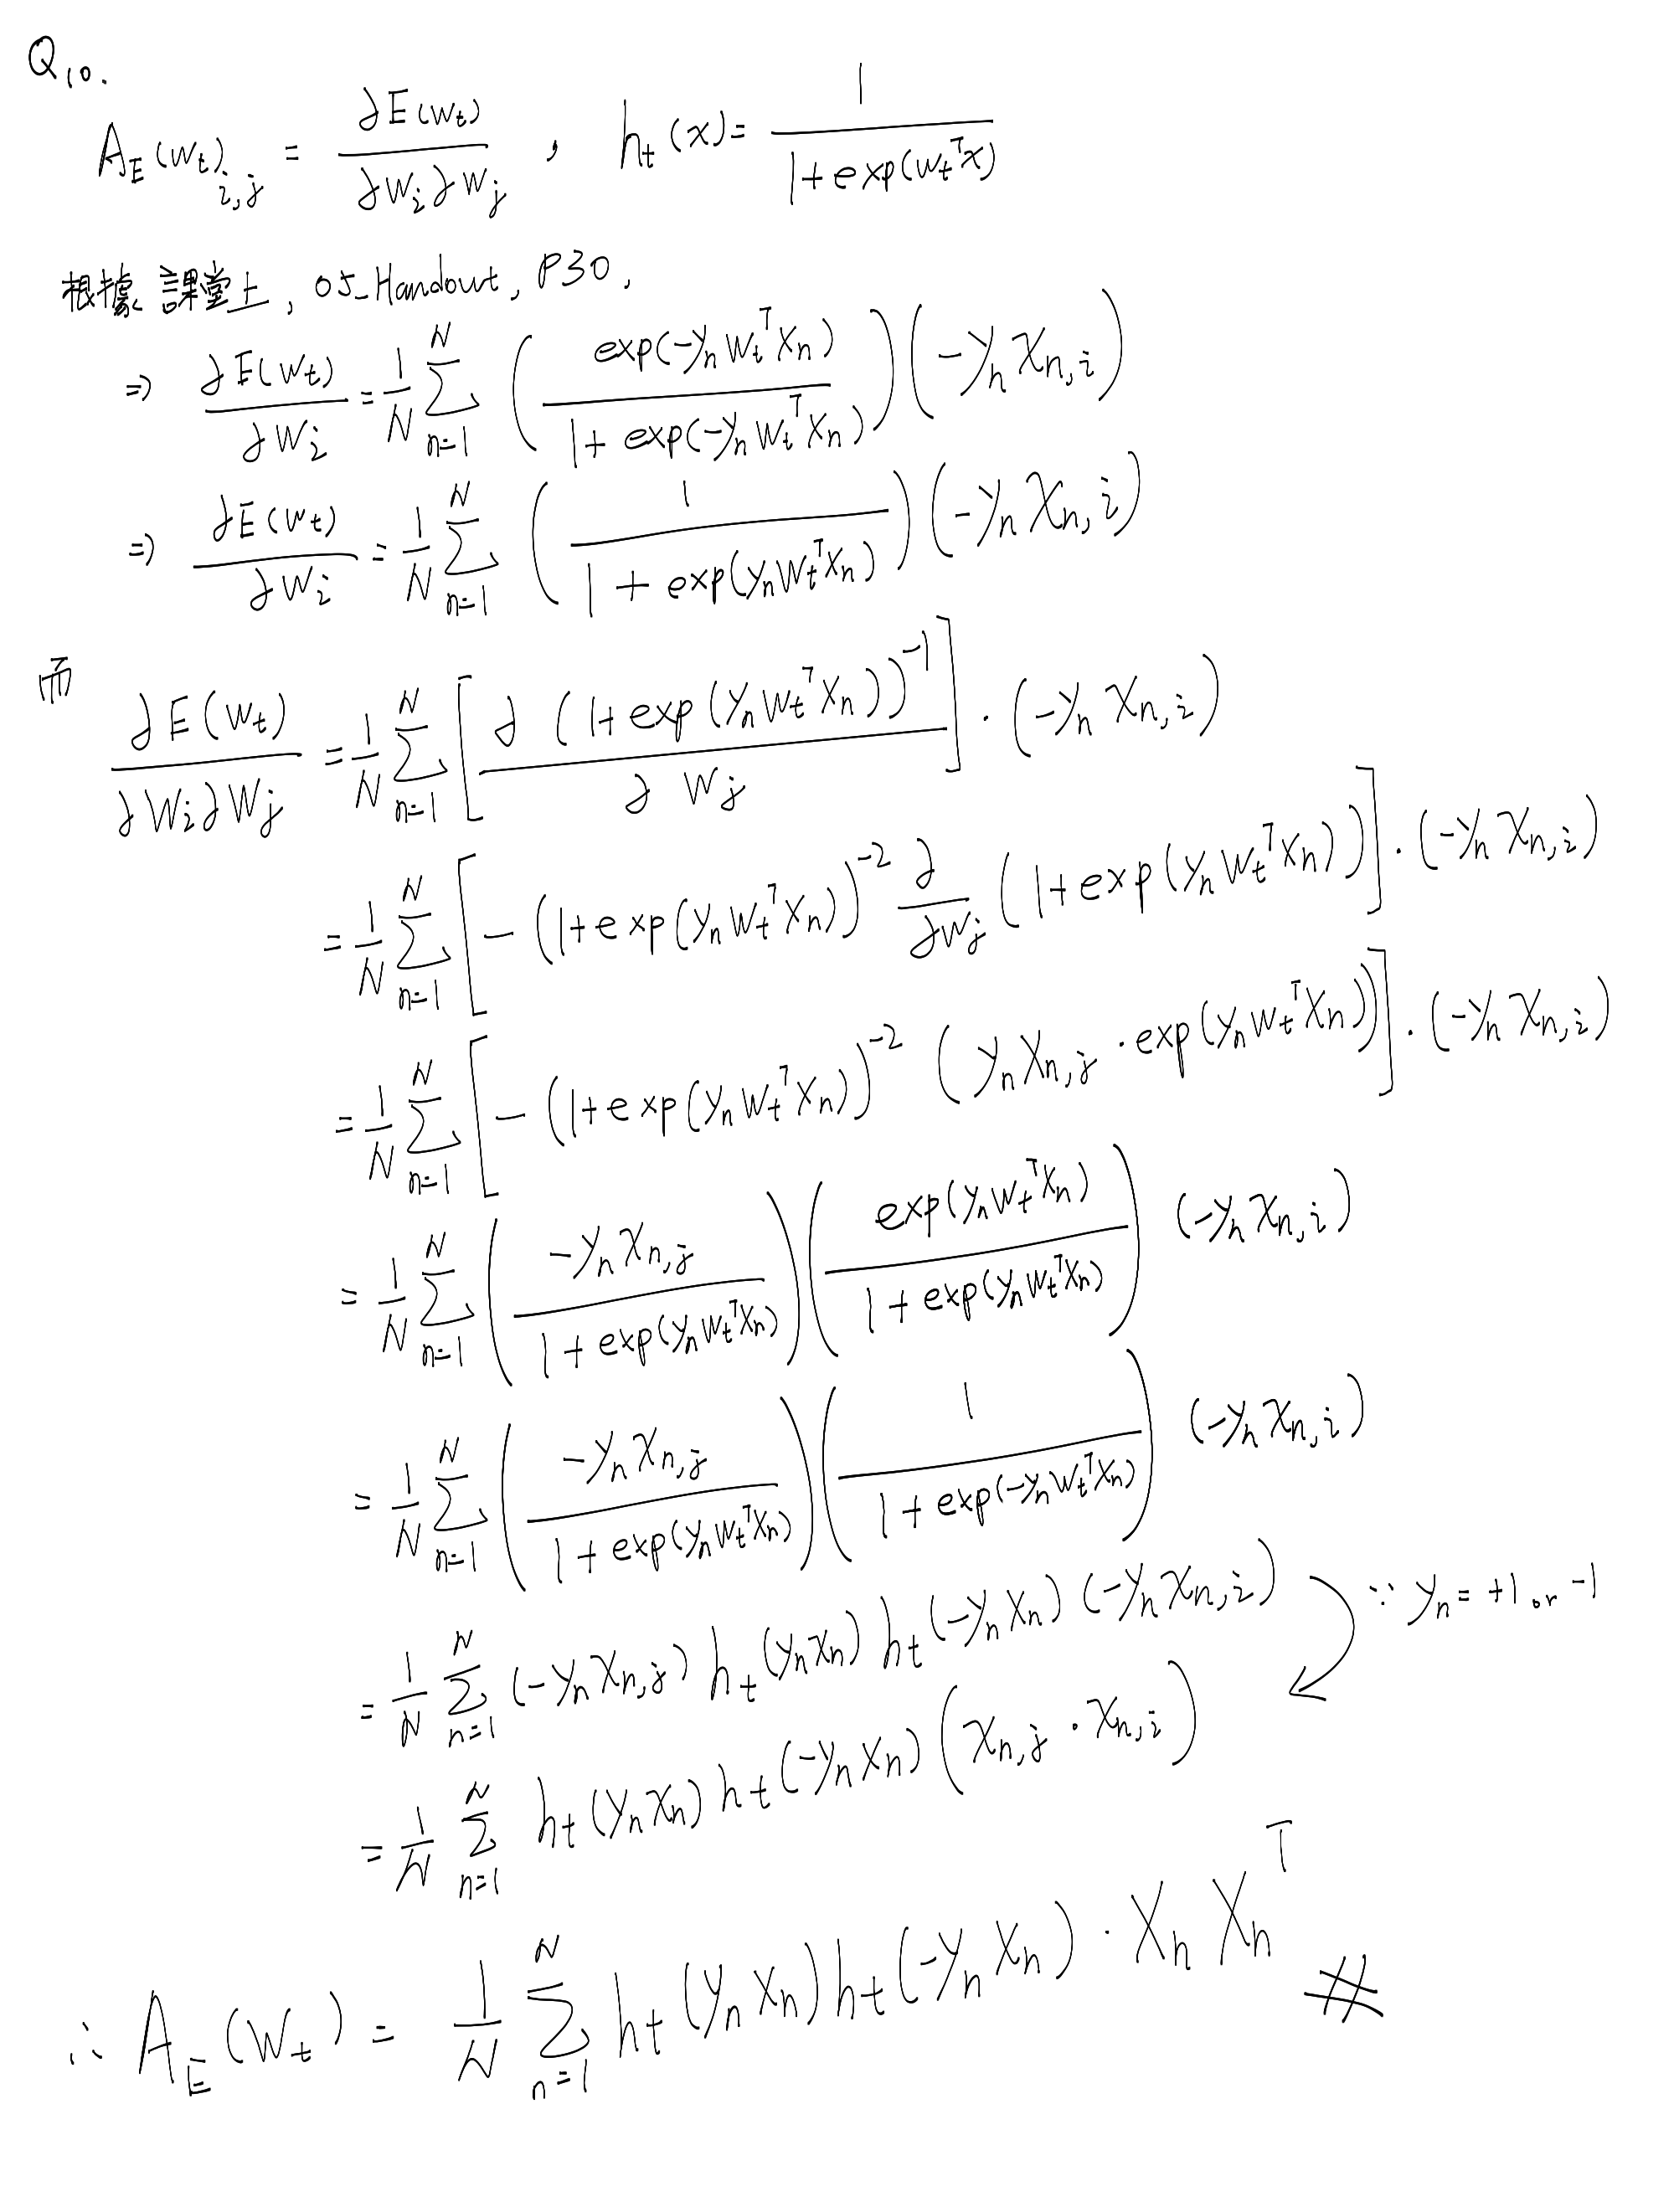 Q10.
A_E(w_t)_{i,j} = ∂E(w_t) / ∂w_i∂w_j , h_t(x) = 1 / (1+exp(w_t^T x))
根據 課堂上, 05_Handout, P30,
⇒ ∂E(w_t)/∂w_i = 1/N Σ_{n=1}^N ( exp(-y_n w_t^T x_n) / (1+exp(-y_n w_t^T x_n)) ) (-y_n x_{n,i})
⇒ ∂E(w_t)/∂w_i = 1/N Σ_{n=1}^N ( 1 / (1+exp(y_n w_t^T x_n)) ) (-y_n x_{n,i})
而 ∂E(w_t)/∂w_i∂w_j = 1/N Σ_{n=1}^N [ ∂(1+exp(y_n w_t^T x_n))^{-1} / ∂w_j ] · (-y_n x_{n,i})
= 1/N Σ_{n=1}^N [ -(1+exp(y_n w_t^T x_n))^{-2} ∂/∂w_j (1+exp(y_n w_t^T x_n)) ] · (-y_n x_{n,i})
= 1/N Σ_{n=1}^N [ -(1+exp(y_n w_t^T x_n))^{-2} (y_n x_{n,j} · exp(y_n w_t^T x_n)) ] · (-y_n x_{n,i})
= 1/N Σ_{n=1}^N ( -y_n x_{n,j} / (1+exp(y_n w_t^T x_n)) ) ( exp(y_n w_t^T x_n) / (1+exp(y_n w_t^T x_n)) ) (-y_n x_{n,i})
= 1/N Σ_{n=1}^N ( -y_n x_{n,j} / (1+exp(y_n w_t^T x_n)) ) ( 1 / (1+exp(-y_n w_t^T x_n)) ) (-y_n x_{n,i})
= 1/N Σ_{n=1}^N (-y_n x_{n,j}) h_t(y_n x_n) h_t(-y_n x_n) (-y_n x_{n,i}) ∵ y_n = +1 or -1
= 1/N Σ_{n=1}^N h_t(y_n x_n) h_t(-y_n x_n) (x_{n,j} · x_{n,i})
∴ A_E(w_t) = 1/N Σ_{n=1}^N h_t(y_n x_n) h_t(-y_n x_n) · x_n x_n^T #